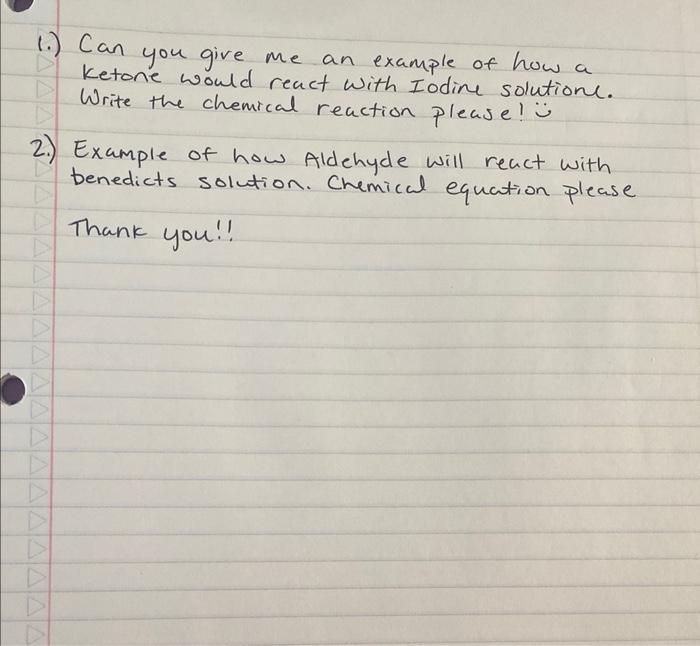 1.) Can you give me an example of how a
Ketone would react with Iodine solution.
Write the chemical reaction please! ü
2.) Example of how Aldehyde will react with
benedicts solution. Chemical equation please
Thank you!!